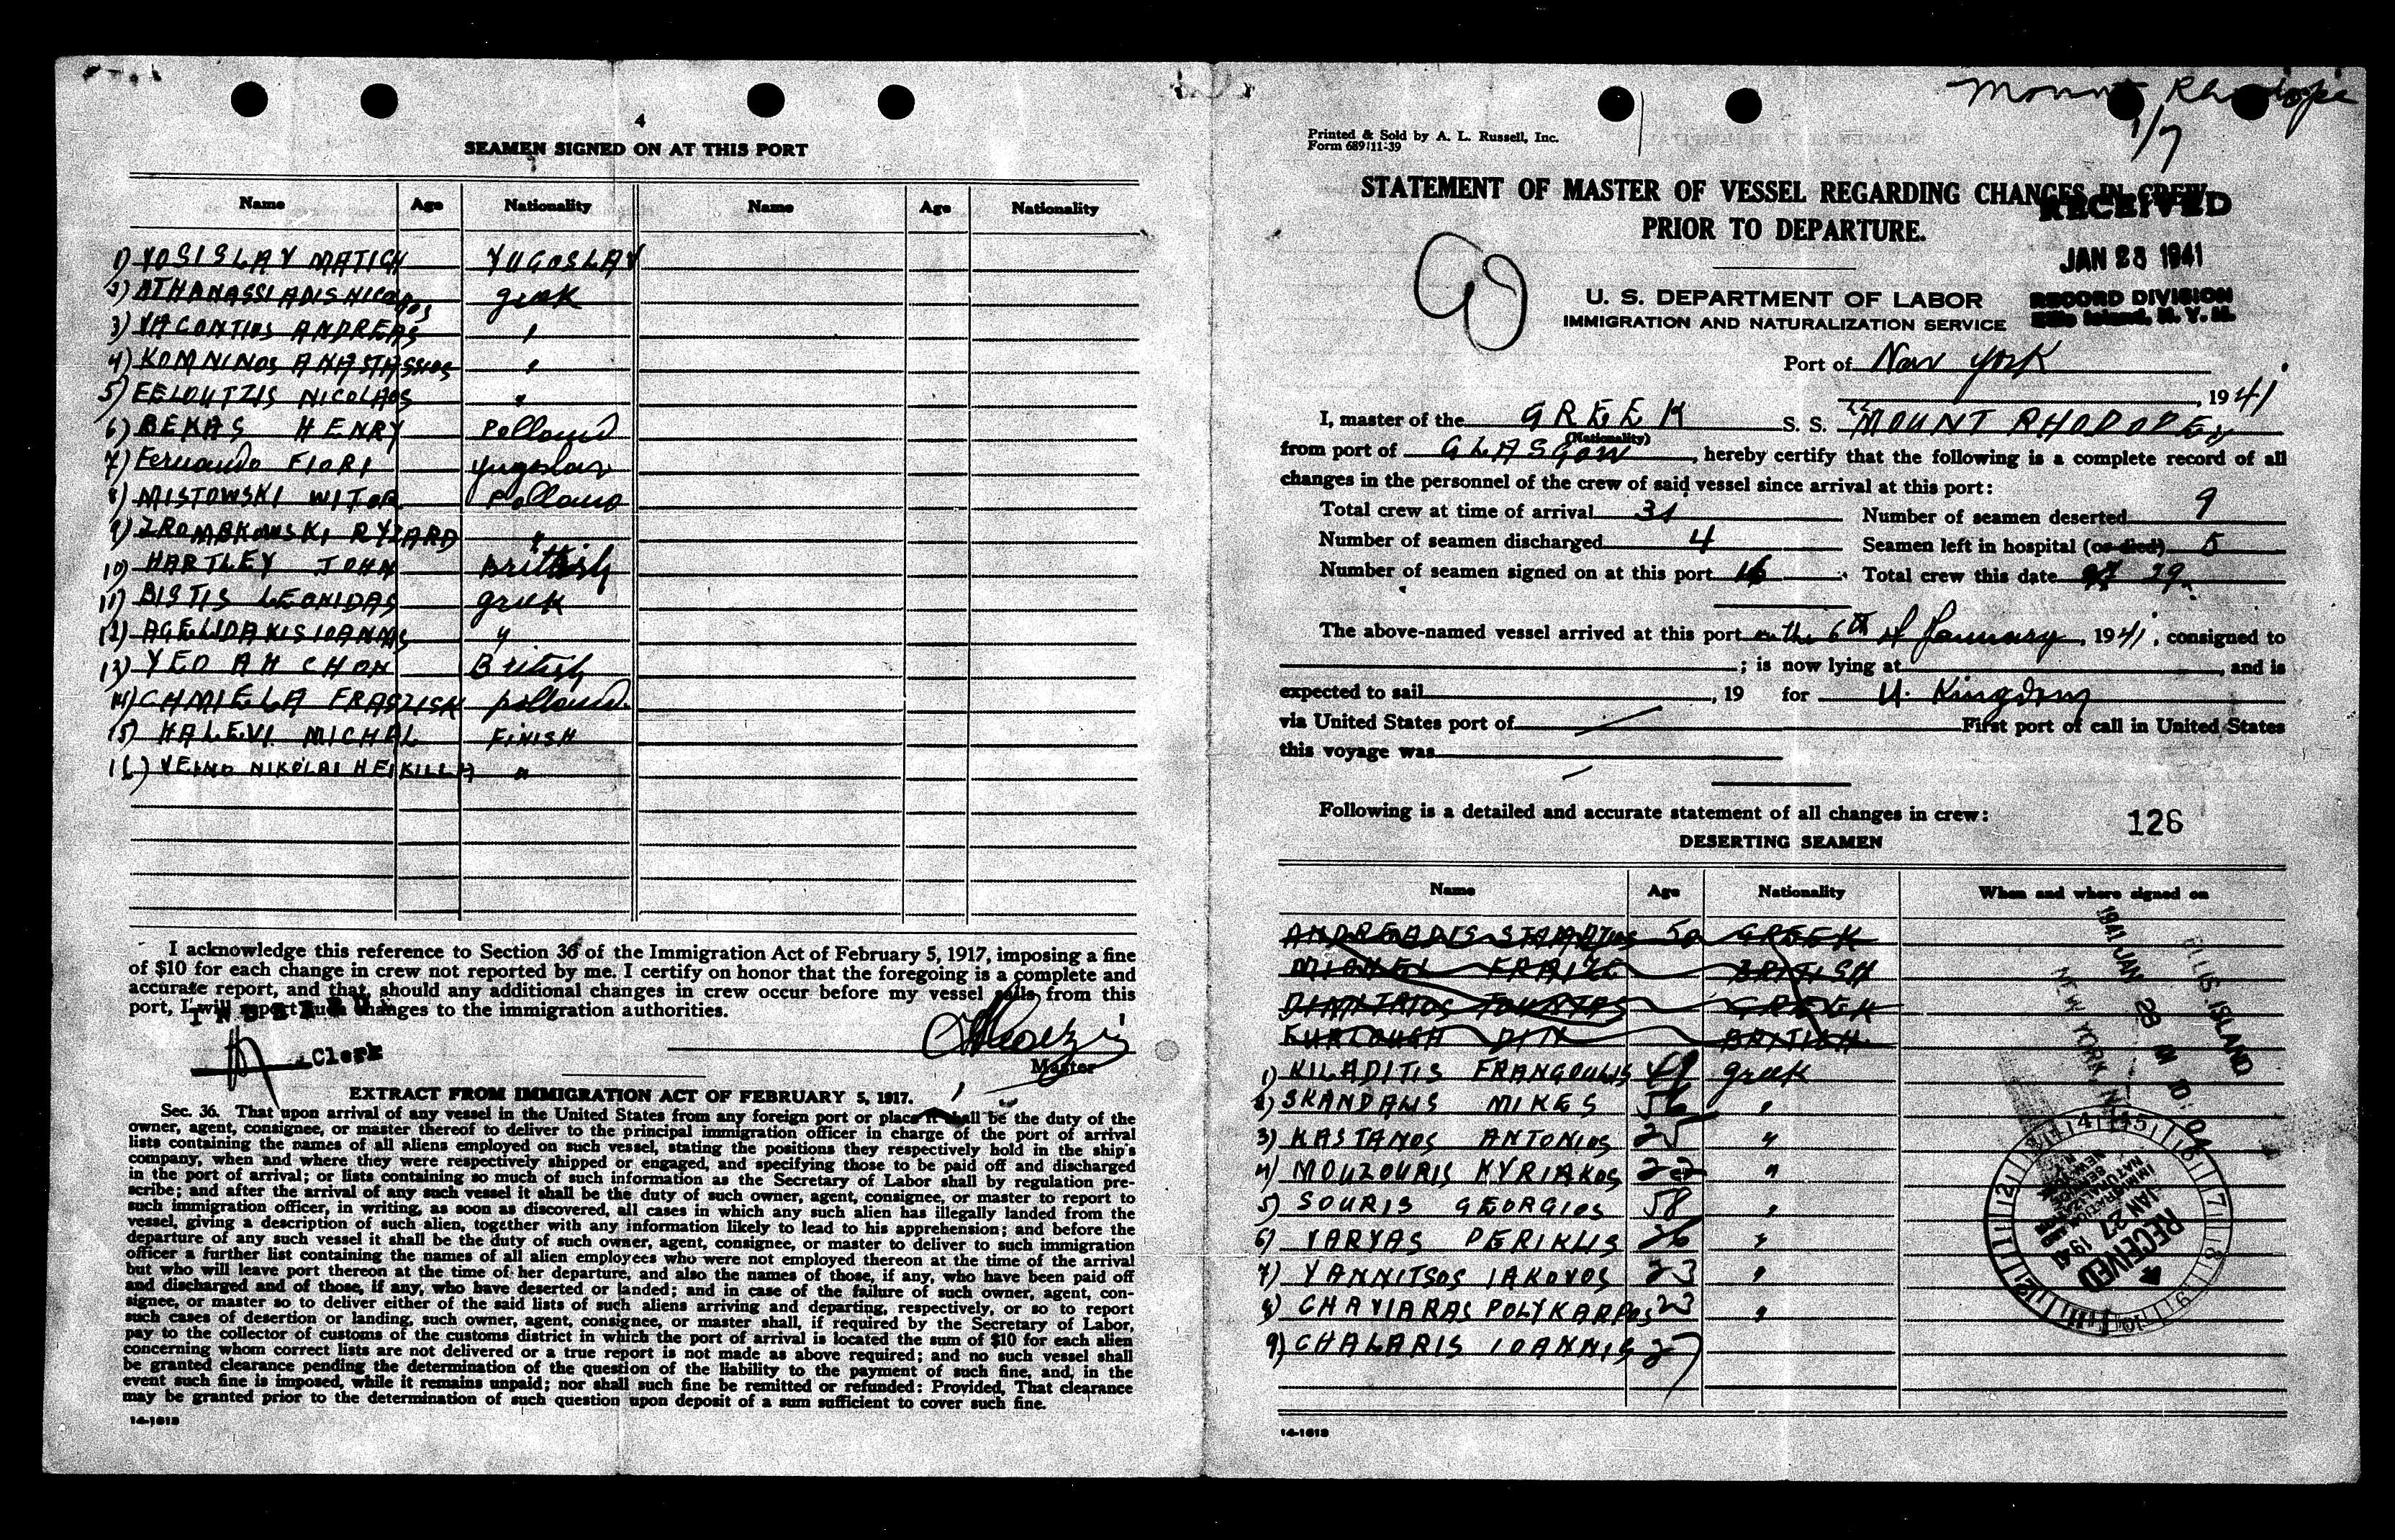 4
SEAMEN SIGNED ON AT THIS PORT
Name Age Nationality Name Age Nationality
1) VOSISLAV MATICH YUGOSLAV
2) ATHANASSIADIS NICOLAOS greek
3) VACONTIOS ANDREAS "
4) KOMNINOS ANASTASSIOS "
5) EELOUTZIS NICOLAOS "
6) BEKAS HENRY Polland
7) Fernando FIORI Yugoslav
8) MISTOWSKI WITOR Polland
9) ZROMBKOWSKI RYZARD "
10) HARTLEY JOHN Brittish
11) BISTIS LEONIDAS greek
12) AGELIDAKIS IOANNIS "
13) YEO AH CHON British
14) CHMIELA FRASZISK polland.
15) KALEVI MICHEL FINISH
16) VEINO NIKOLAI HEIKILLA "
I acknowledge this reference to Section 36 of the Immigration Act of February 5, 1917, imposing a fine
of $10 for each change in crew not reported by me. I certify on honor that the foregoing is a complete and
accurate report, and that, should any additional changes in crew occur before my vessel sails from this
port, I will report such changes to the immigration authorities.
Clerk
Master
EXTRACT FROM IMMIGRATION ACT OF FEBRUARY 5, 1917.
Sec. 36. That upon arrival of any vessel in the United States from any foreign port or place it shall be the duty of the
owner, agent, consignee, or master thereof to deliver to the principal immigration officer in charge of the port of arrival
lists containing the names of all aliens employed on such vessel, stating the positions they respectively hold in the ship's
company, when and where they were respectively shipped or engaged, and specifying those to be paid off and discharged
in the port of arrival; or lists containing so much of such information as the Secretary of Labor shall by regulation pre-
scribe; and after the arrival of any such vessel it shall be the duty of such owner, agent, consignee, or master to report to
such immigration officer, in writing, as soon as discovered, all cases in which any such alien has illegally landed from the
vessel, giving a description of such alien, together with any information likely to lead to his apprehension; and before the
departure of any such vessel it shall be the duty of such owner, agent, consignee, or master to deliver to such immigration
officer a further list containing the names of all alien employees who were not employed thereon at the time of the arrival
but who will leave port thereon at the time of her departure, and also the names of those, if any, who have been paid off
and discharged and of those, if any, who have deserted or landed; and in case of the failure of such owner, agent, con-
signee, or master so to deliver either of the said lists of such aliens arriving and departing, respectively, or so to report
such cases of desertion or landing, such owner, agent, consignee, or master shall, if required by the Secretary of Labor,
pay to the collector of customs of the customs district in which the port of arrival is located the sum of $10 for each alien
concerning whom correct lists are not delivered or a true report is not made as above required; and no such vessel shall
be granted clearance pending the determination of the question of the liability to the payment of such fine, and, in the
event such fine is imposed, while it remains unpaid; nor shall such fine be remitted or refunded: Provided, That clearance
may be granted prior to the determination of such question upon deposit of a sum sufficient to cover such fine.
14-1613
Mount Rhodope
1/7
Printed & Sold by A. L. Russell, Inc.
Form 689 11-39
STATEMENT OF MASTER OF VESSEL REGARDING CHANGES IN CREW
PRIOR TO DEPARTURE.
RECEIVED
JAN 23 1941
RECORD DIVISION
Ellis Island, N. Y. H.
U. S. DEPARTMENT OF LABOR
IMMIGRATION AND NATURALIZATION SERVICE
Port of New York
, 1941
I, master of the GREEK S. S. "MOUNT RHODOPE"
(Nationality)
from port of GLASGOW, hereby certify that the following is a complete record of all
changes in the personnel of the crew of said vessel since arrival at this port:
Total crew at time of arrival 31 Number of seamen deserted 9
Number of seamen discharged 4 Seamen left in hospital (or died) 5
Number of seamen signed on at this port 16 Total crew this date 29
The above-named vessel arrived at this port on the 6th of January, 1941, consigned to
; is now lying at , and is
expected to sail , 19 for U. Kingdom
via United States port of First port of call in United States
this voyage was
Following is a detailed and accurate statement of all changes in crew:
126
DESERTING SEAMEN
Name Age Nationality When and where signed on
ANDREADIS STAMATIOS 50 GREEK
MICHEL FRAIZE BRITISH
DIMITRIOS FOUNTAS GREEK
BRITISH.
1) KILADITIS FRANGOULIS 49 greek
2) SKANDALIS MIKES 56 "
3) KASTANOS ANTONIOS 25 "
4) MOUZOURIS KYRIAKOS 22 "
5) SOURIS GEORGIOS 58 "
6) VARVAS PERIKLIS 26 "
7) YANNITSOS IAKOVOS 23 "
8) CHAVIARAS POLYKARPOS 23 "
9) CHALARIS IOANNIS 27
1941 JAN 23 AM 10:04
ELLIS ISLAND
NEW YORK, N.
RECEIVED
JAN 27 1941
14-1613